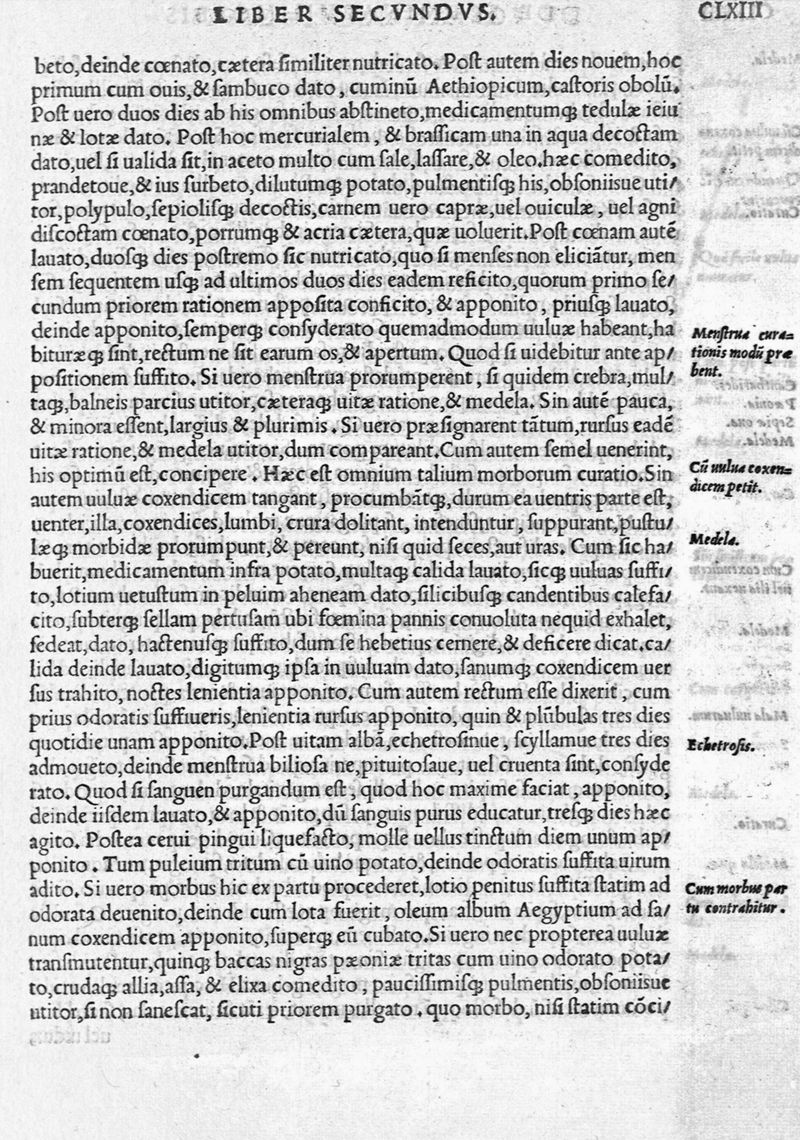 LIBER SECVNDVS.
CLXIII
beto,deinde cœnato,cætera ſimiliter nutricato. Poſt autem dies nouem,hoc
primum cum ouis,& ſambuco dato, cuminū Aethiopicum,caſtoris obolū.
Poſt uero duos dies ab his omnibus abſtineto,medicamentumqꝫ tedulæ ieiu
næ & lotæ dato. Poſt hoc mercurialem, & braſſicam una in aqua decoctam
dato,uel ſi ualida ſit,in aceto multo cum ſale,laſſare,& oleo.hæc comedito,
prandetoue,& ius ſurbeto,dilutumqꝫ potato,pulmentiſqꝫ his,obſoniisue uti/
tor,polypulo,ſepioliſqꝫ decoctis,carnem uero capræ,uel ouiculæ, uel agni
diſcoctam cœnato,porrumqꝫ & acria cætera,quæ uoluerit.Poſt cœnam autē
lauato,duoſqꝫ dies poſtremo ſic nutricato,quo ſi menſes non eliciātur, men
ſem ſequentem uſqꝫ ad ultimos duos dies eadem reficito,quorum primo ſe/
cundum priorem rationem appoſita conficito, & apponito, priuſqꝫ lauato,
deinde apponito,ſemperqꝫ conſyderato quemadmodum uuluæ habeant,ha
bituræqꝫ ſint,rectum ne ſit earum os,& apertum. Quod ſi uidebitur ante ap/
poſitionem ſuffito. Si uero menſtrua prorumperent, ſi quidem crebra,mul/
taqꝫ,balneis parcius utitor,cæteraqꝫ uitæ ratione,& medela. Sin autē pauca,
& minora eſſent,largius & plurimis. Si uero præſignarent tātum,rurſus eadē
uitæ ratione,& medela utitor,dum compareant.Cum autem ſemel uenerint,
his optimū eſt,concipere. Hæc eſt omnium talium morborum curatio.Sin
autem uuluæ coxendicem tangant, procumbātqꝫ,durum ea uentris parte eſt,
uenter,illa,coxendices,lumbi, crura dolitant, intenduntur, ſuppurant,puſtu/
læqꝫ morbidæ prorumpunt,& pereunt, niſi quid ſeces,aut uras. Cum ſic ha/
buerit,medicamentum infra potato,multaqꝫ calida lauato,ſicqꝫ uuluas ſuffi/
to,lotium uetuſtum in peluim aheneam dato,ſilicibuſqꝫ candentibus calefa/
cito,ſubterqꝫ ſellam pertuſam ubi fœmina pannis conuoluta nequid exhalet,
ſedeat,dato, hactenuſqꝫ ſuffito,dum ſe hebetius cernere,& deficere dicat.ca/
lida deinde lauato,digitumqꝫ ipſa in uuluam dato,ſanumqꝫ coxendicem uer
ſus trahito, noctes lenientia apponito. Cum autem rectum eſſe dixerit, cum
prius odoratis ſuffiueris,lenientia rurſus apponito, quin & plūbulas tres dies
quotidie unam apponito.Poſt uitam albā,echetroſinue, ſcyllamue tres dies
admoueto,deinde menſtrua bilioſa ne,pituitoſaue, uel cruenta ſint,conſyde
rato. Quod ſi ſanguen purgandum eſt, quod hoc maxime faciat, apponito,
deinde iiſdem lauato,& apponito,dū ſanguis purus educatur,treſqꝫ dies hæc
agito. Poſtea cerui pingui liquefacto, molle uellus tinctum diem unum ap/
ponito. Tum puleium tritum cū uino potato,deinde odoratis ſuffita uirum
adito. Si uero morbus hic ex partu procederet,lotio penitus ſuffita ſtatim ad
odorata deuenito,deinde cum lota fuerit, oleum album Aegyptium ad ſa/
num coxendicem apponito,ſuperqꝫ eū cubato.Si uero nec propterea uuluæ
tranſmutentur,quinqꝫ baccas nigras pæoniæ tritas cum uino odorato pota/
to,crudaqꝫ allia,aſſa, & elixa comedito, pauciſſimiſqꝫ pulmentis,obſoniisue
utitor,ſi non ſaneſcat, ſicuti priorem purgato. quo morbo, niſi ſtatim cōci/
Menſtrua cura=
tionis modū præ
bent.
Cū uulua coxen=
dicem petit.
Medela.
Echetroſis.
Cum morbus par
tu contrahitur.